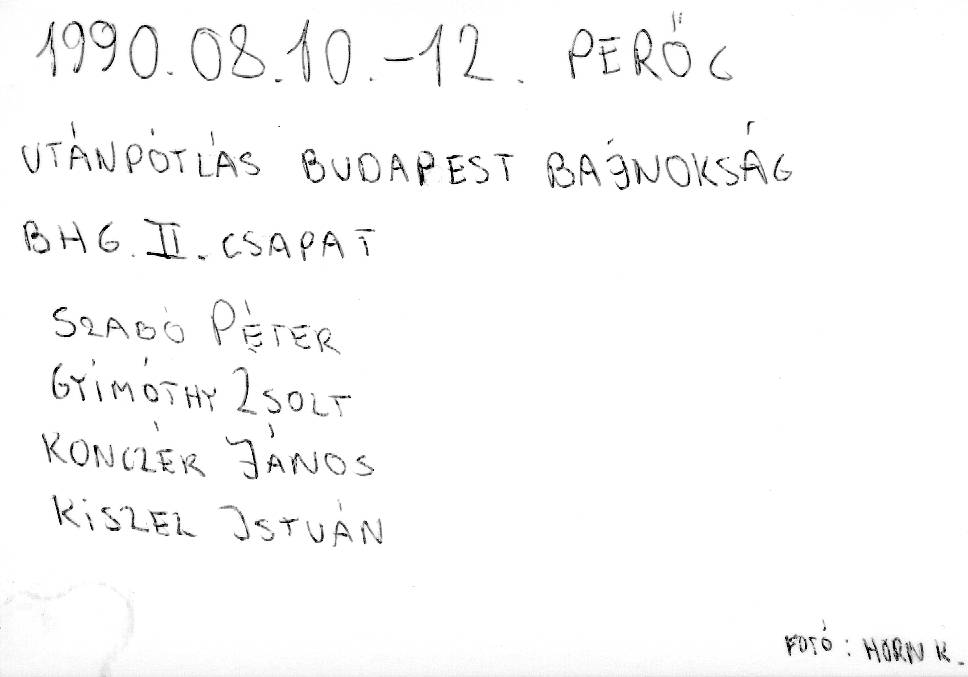 1990.08.10.-12. PERŐC
UTÁNPÓTLÁS BUDAPEST BAJNOKSÁG
BHG. II. CSAPAT
SZABÓ PÉTER
GYÍMÓTHY ZSOLT
KONCZÉR JÁNOS
KISZEL ISTVÁN
FOTÓ: HORN K.